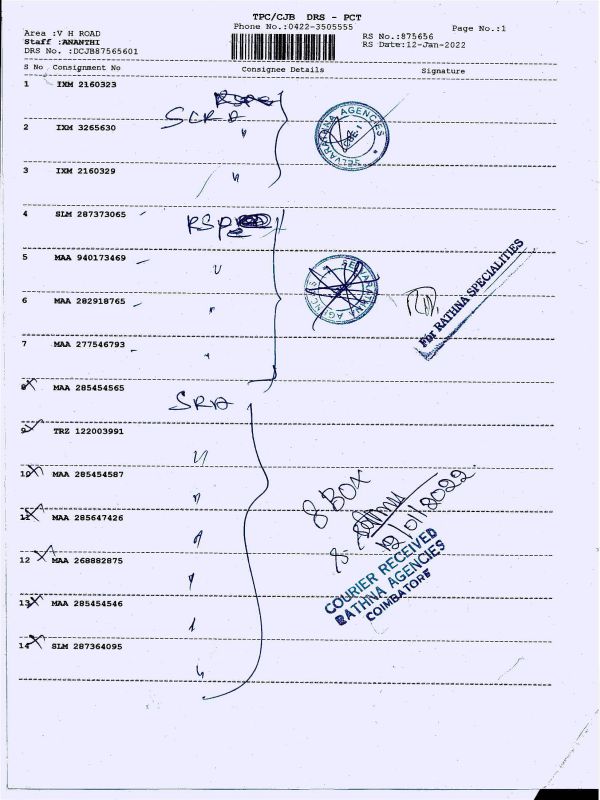 TPC/CJB DRS - PCT
Area :V H ROAD
Phone No.:0422-3505555
Page No.:1
Staff :ANANTHI
RS No.:875656
DRS No. :DCJB87565601
RS Date:12-Jan-2022
S No Consignment No Consignee Details Signature
1 IXM 2160323
SCRA
SELVARATHNA AGENCIES
CBE-1
2 IXM 3265630 "
3 IXM 2160329 "
4 SLM 287373065 RSP
5 MAA 940173469 "
SELVARATHNA AGENCIES
For RATHNA SPECIALITIES
6 MAA 282918765 "
7 MAA 277546793 "
8 MAA 285454565 SRA
9 TRZ 122003991 "
10 MAA 285454587 "
8 BOX
11 MAA 285647426 "
12/01/2022
12 MAA 268882875 "
COURIER RECEIVED
RATHNA AGENCIES
COIMBATORE
13 MAA 285454546 "
14 SLM 287364095 "